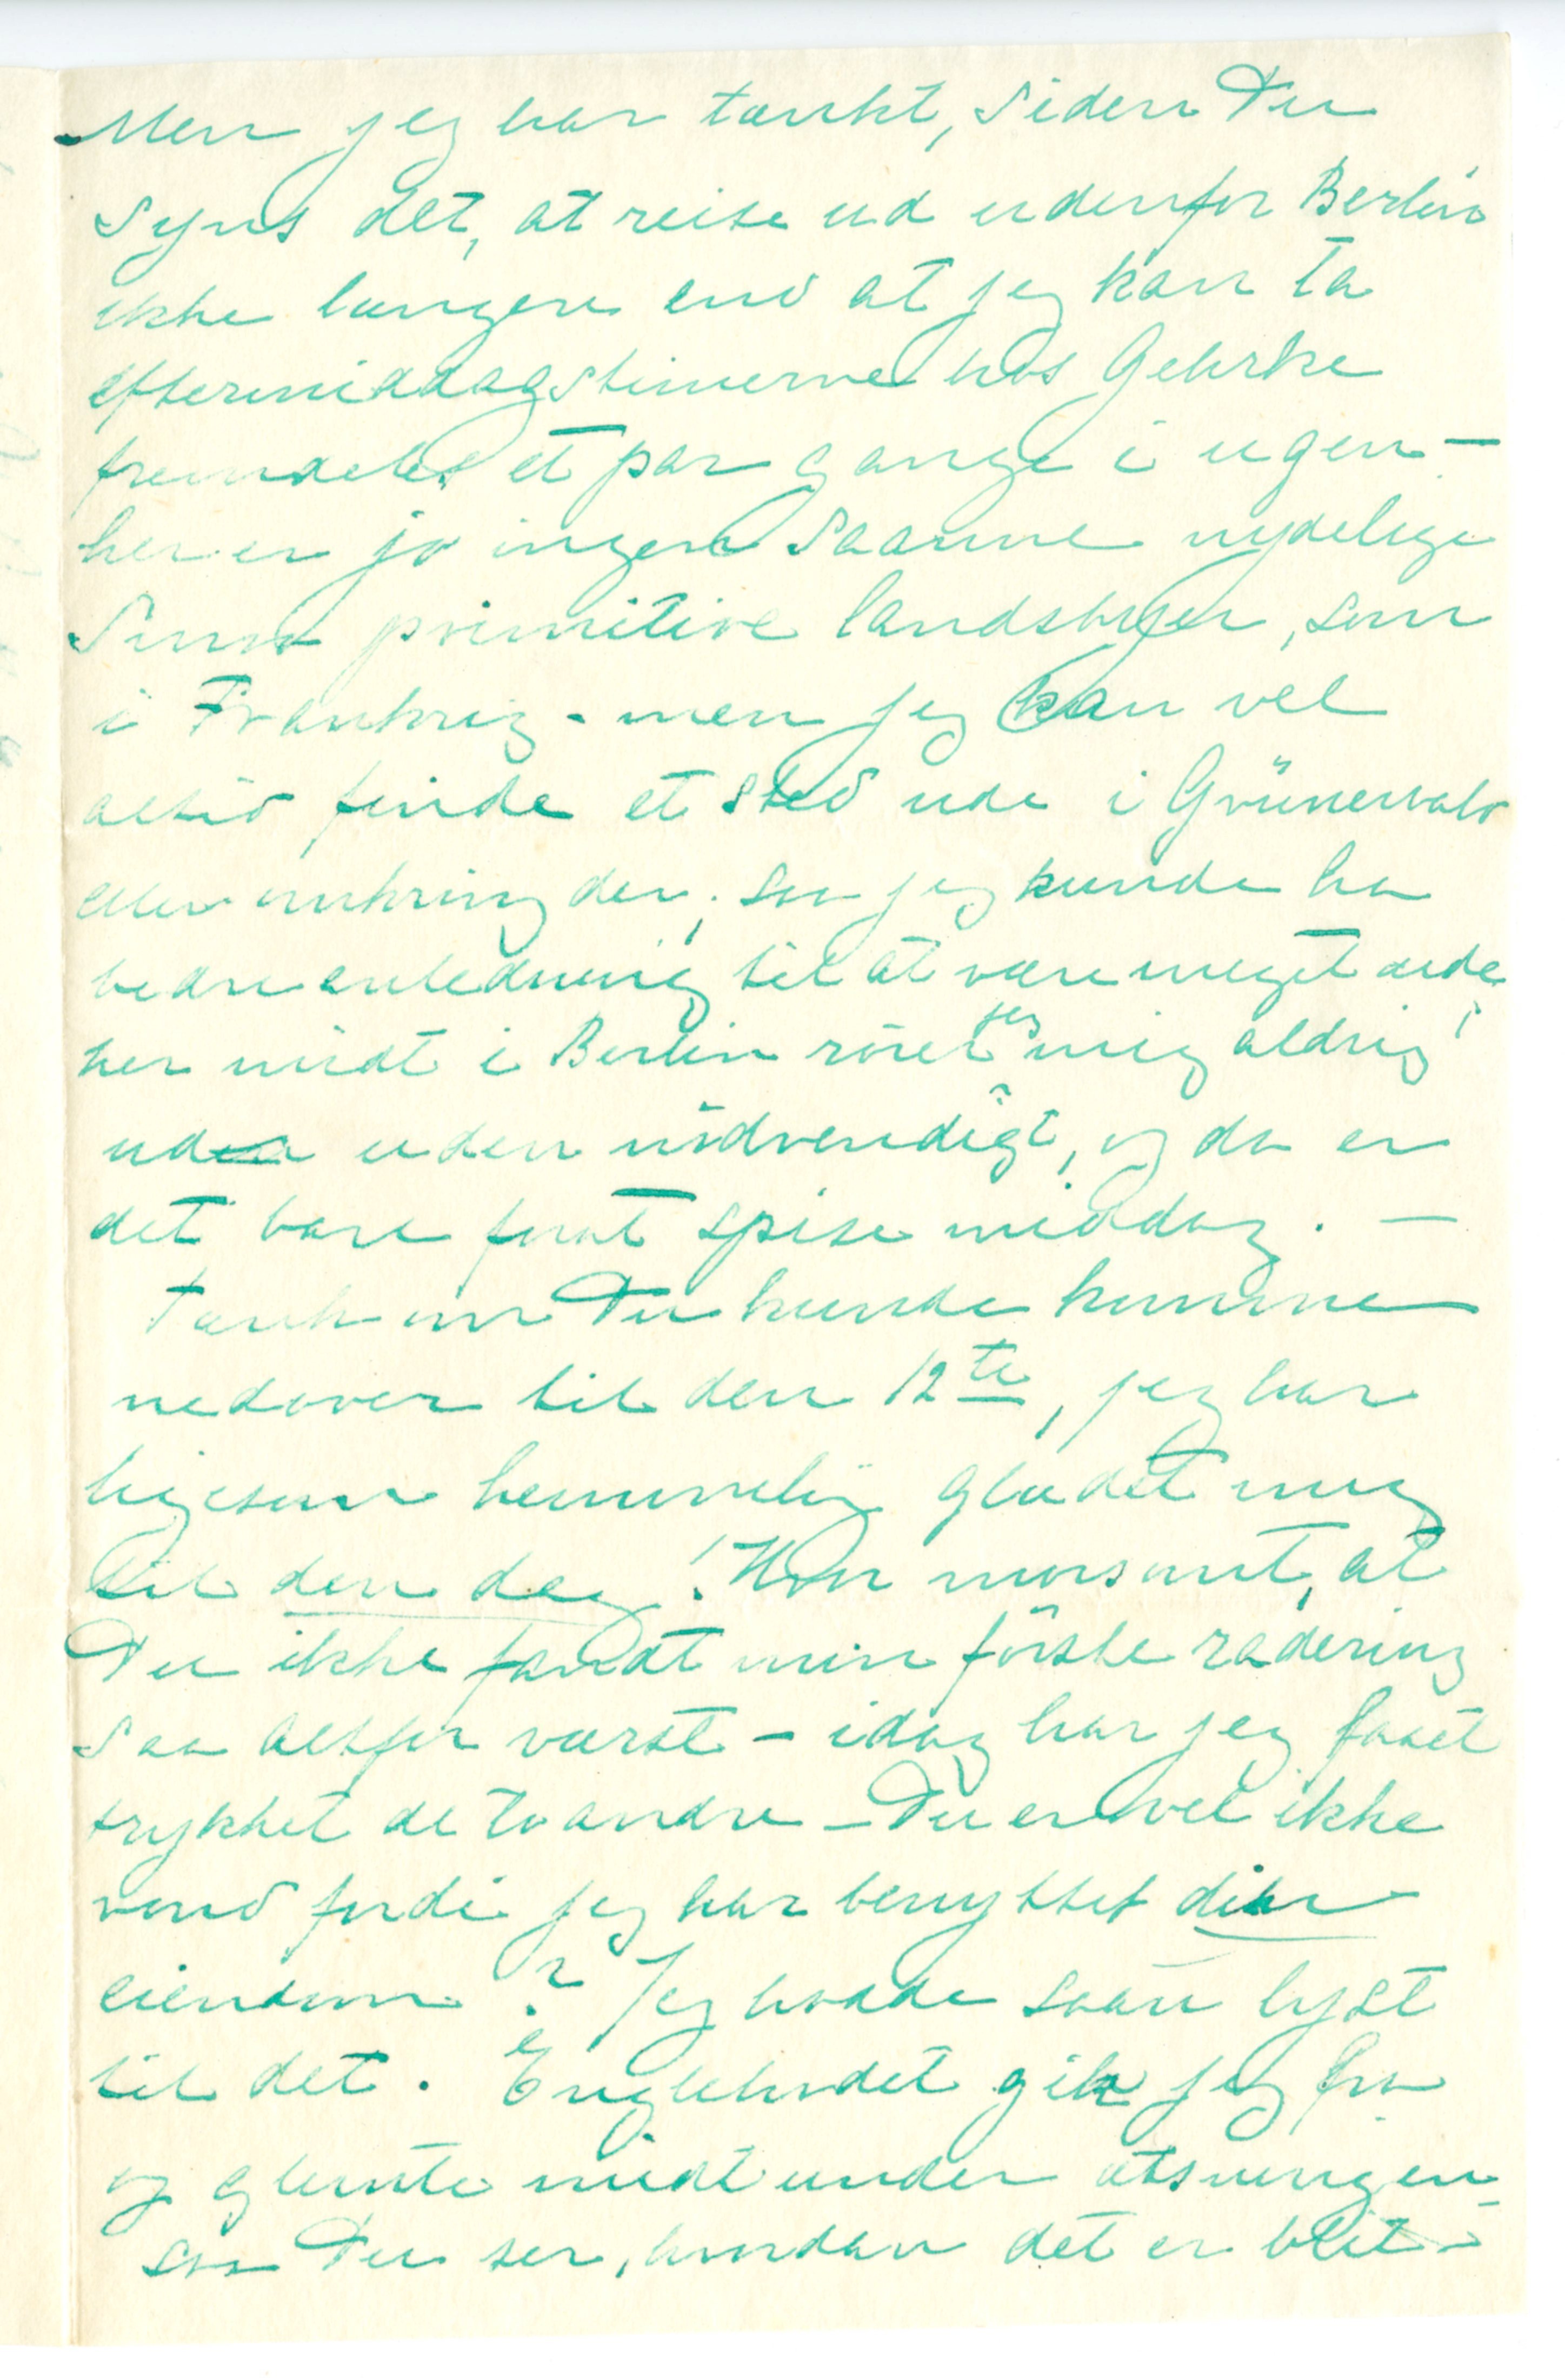 Men jeg har tænkt, siden Du
syns det, at reise ud udenfor Berlin
ikke længere end at jeg kan ta
eftermiddagstimerne hos Gehrke
fremdeles et par gange i ugen –
her er jo ingen saanne nydelige
smaa primitive landsbyer, som
i Frankrig – men jeg kan vel
altid finde et sted ude i Grünewald
eller omkring der, saa jeg kunde ha
bedre anledning til at være meget ude,
her midt i Berlin rører jeg mig aldrig
ud uden nödvendigt, og da er
det bare forat spise middag. –
Tænk om Du kunde komme
nedover til den 12te, jeg har
ligesom hemmelig glædet mig
til den dag! Hvor morsomt, at
Du ikke fandt min förste radering
saa altfor værst – idag har jeg faaet
trykket de to andre – Du er vel ikke
vond fordi jeg har benyttet din
eiendom? Jeg hadde saan lyst
til det. Englehodet gik jeg fra
og glemte midt under ætsningen –
saa Du ser, hvordan det er blit –